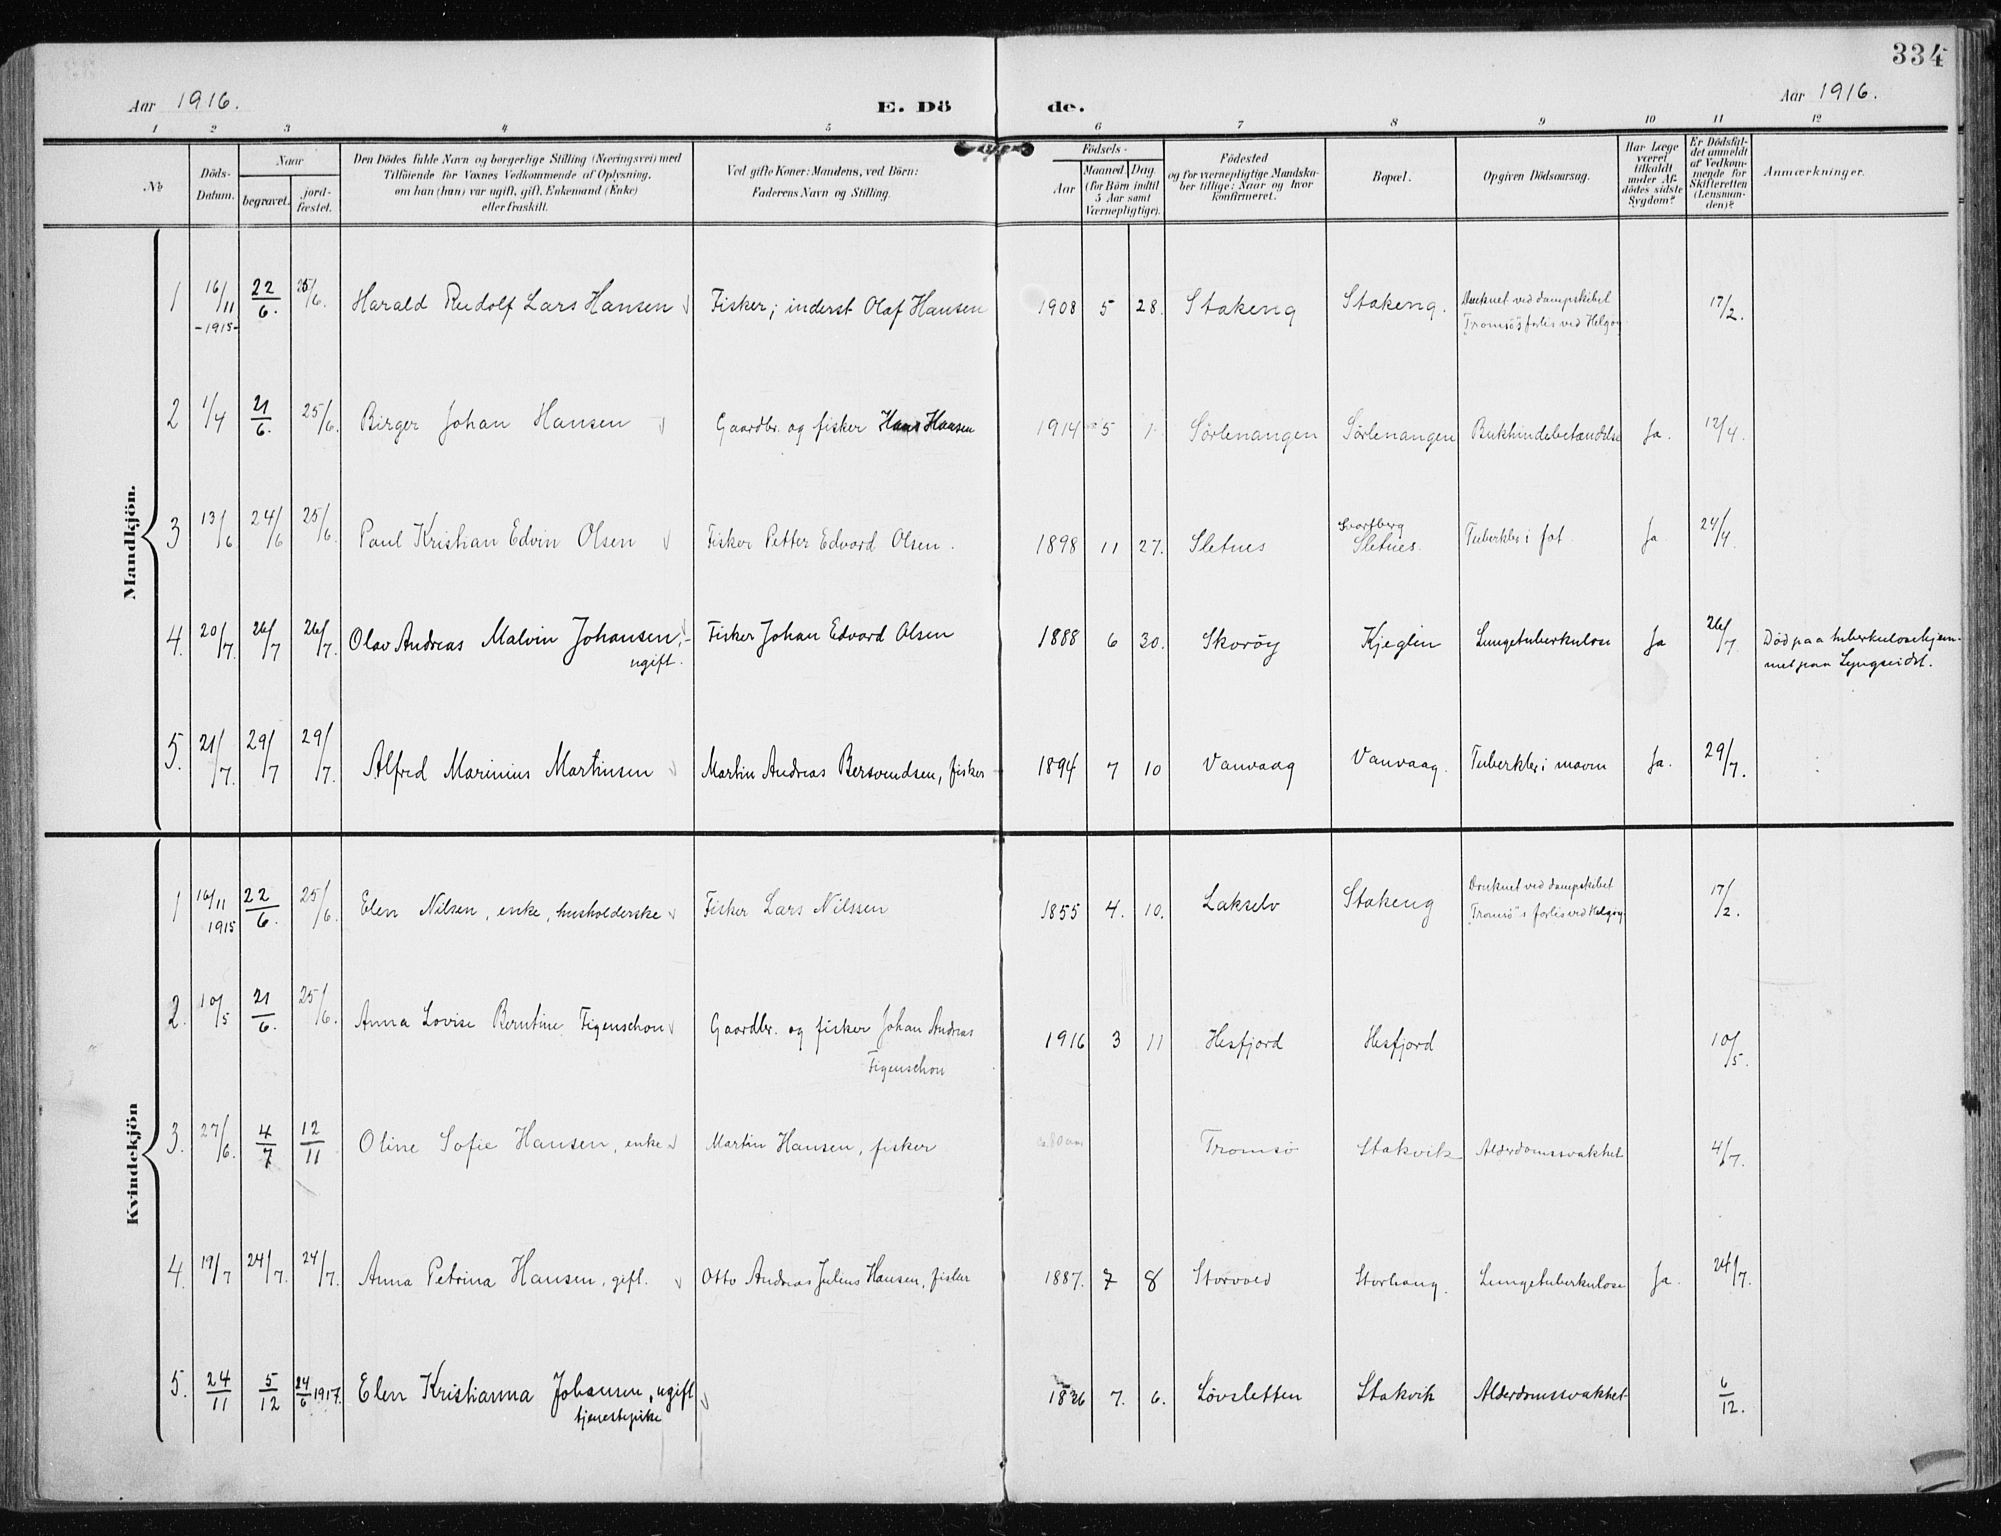 334
Aar 1916.
E. Dö de.
Aar 1916.
1 2 3 4 5 6 7 8 9 10 11 12
No
Döds-Datum.
Naar
begravet.
jord-fæstet.
Den Dödes fulde Navn og borgerlige Stilling (Næringsvei) med
Tilföiende for Voxnes Vedkommende af Oplysning,
om han (hun) var ugift, gift, Enkemand (Enke)
eller fraskilt.
Ved gifte Koner: Mandens, ved Börn:
Faderens Navn og Stilling.
Födsels-
Aar
Maaned Dag
(for Börn indtil
5 Aar samt
Værnepligtige).
Födested
og for værnepligtige Mandska-
ber tillige: Naar og hvor
konfirmeret.
Bopæl.
Opgiven Dödsaarsag.
Har Læge
været
tilkaldt
under Af-
dödes sidste
Sygdom?
Er Dödsfal-
det anmeldt
af Vedkom-
mende for
Skifteretten
(Lensman-
den)?
Anmærkninger.
Mandkjön.
1 16/11 -1915- 22/6. 25/6. Harald Rudolf Lars Hansen Fisker; inderst Olaf Hansen 1908 5 28. Stakeng Stakeng. Druknet ved dampskibet 17/2.
Tromsö's forlis ved Helgøy
2 1/4 21/6. 25/6. Birger Johan Hansen Gaardbr. og fisker Hans Hansen 1914 5 1 Sörlenangen Sörlenangen Bukhindebetændelse Ja. 12/4.
3 13/6 24/6 25/6. Paul Kristian Edvin Olsen Fisker Petter Edvard Olsen. 1898 11 27. Sletnes Svartberg
Sletnes. Tuberkler i fot. Ja 24/4.
4. 20/7. 26/7 26/7. Olav Andreas Malvin Johansen,
ugift. Fisker Johan Edvard Olsen 1888 6 30. Skoröy Kjeglen Lungetuberkulose Ja 26/7. Död paa tuberkulosehjem-
met paa Lyngseidet.
5. 21/7. 29/7 29/7. Alfred Marinius Martinsen Martin Andreas Bersvendsen, fisker 1894 7 10 Vanvaag Vanvaag. Tuberkler i maven Ja. 29/7.
Kvindekjön
1 16/11 1915 22/6. 25/6. Elen Nilsen, enke, husholderske Fisker Lars Nilssen 1855 4. 10. Lakselv Stakeng Druknet ved dampskibet 17/2.
Tromsö's forlis ved Helgøy
2. 10/5 21/6. 25/6. Anna Lovise Berntine Figenschou Gaardbr. og fisker Johan Andreas
Figenschou 1916 3 11 Hesfjord Hesfjord 10/5.
3. 27/6. 4/7 12/11 Oline Sofie Hansen, enke Martin Hansen, fisker Tromsö Stakvik Alderdomssvakhet 4/7.
4. 19/7 24/7. 24/7. Anna Petrina Hansen, gift. Otto Andreas Julius Hansen, fisker 1887. 7 8 Storvold Storhaug. Lungetuberkulose Ja. 24/7.
5. 24/11 5/12 24/6 1917. Elen Kristianna Johansen, ugift
tjenestepike 1836 7. 6. Lövsletten Stakvik Alderdomssvakhet 6/12.